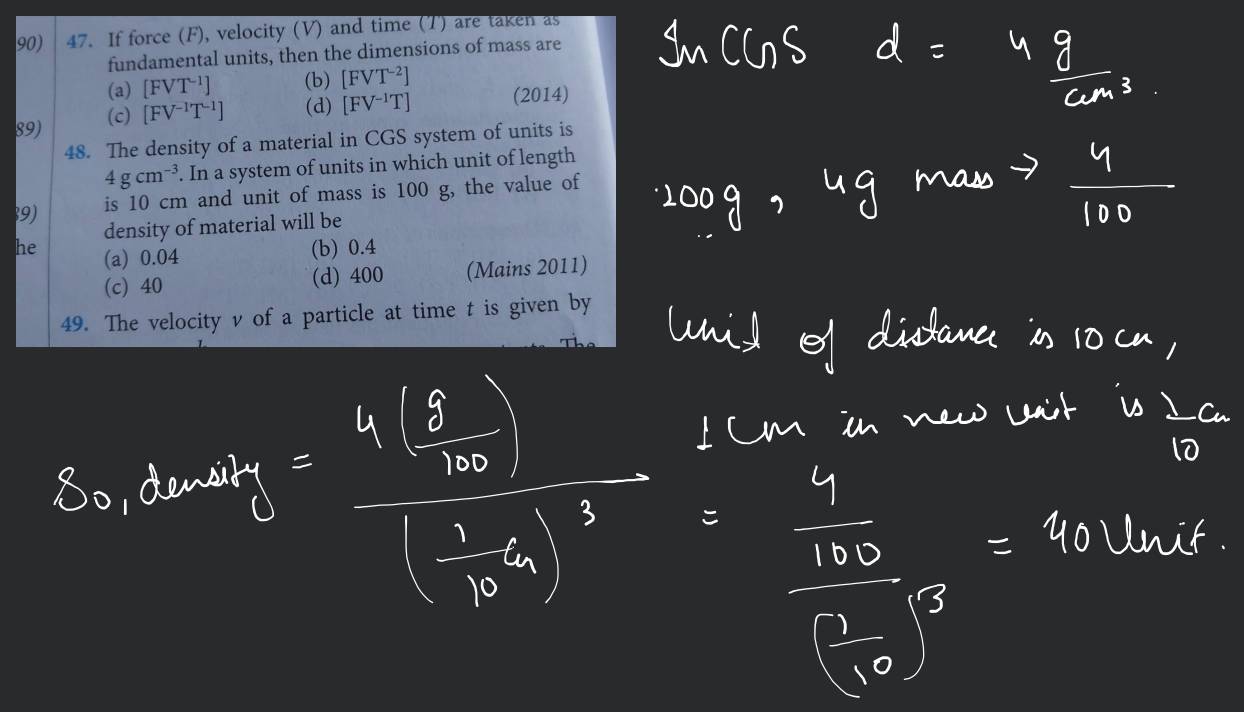 90) 47. If force (F), velocity (V) and time (T) are taken as
fundamental units, then the dimensions of mass are
(a) [FVT⁻¹] (b) [FVT⁻²]
(c) [FV⁻¹T⁻¹] (d) [FV⁻¹T] (2014)
89)
48. The density of a material in CGS system of units is
4 g cm⁻³. In a system of units in which unit of length
is 10 cm and unit of mass is 100 g, the value of
39) density of material will be
he (a) 0.04 (b) 0.4
(c) 40 (d) 400 (Mains 2011)
49. The velocity v of a particle at time t is given by
The
In CGS d = 4 g/cm³.
100g, 4g mass → 4/100
Unit of distance is 10 cm,
1 cm in new unit is 1/10 cm
So, density = 4(g/100)/(1/10 cm)³
= (4/100)/(1/10)³ = 40 Unit.